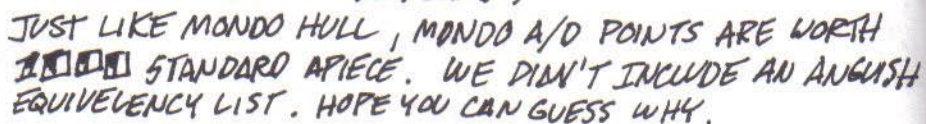 JUST LIKE MONDO HULL, MONDO A/D POINTS ARE WORTH
STANDARD APIECE. WE DIDN'T INCLUDE AN ANGUISH
EQUIVELENCY LIST. HOPE YOU CAN GUESS WHY.